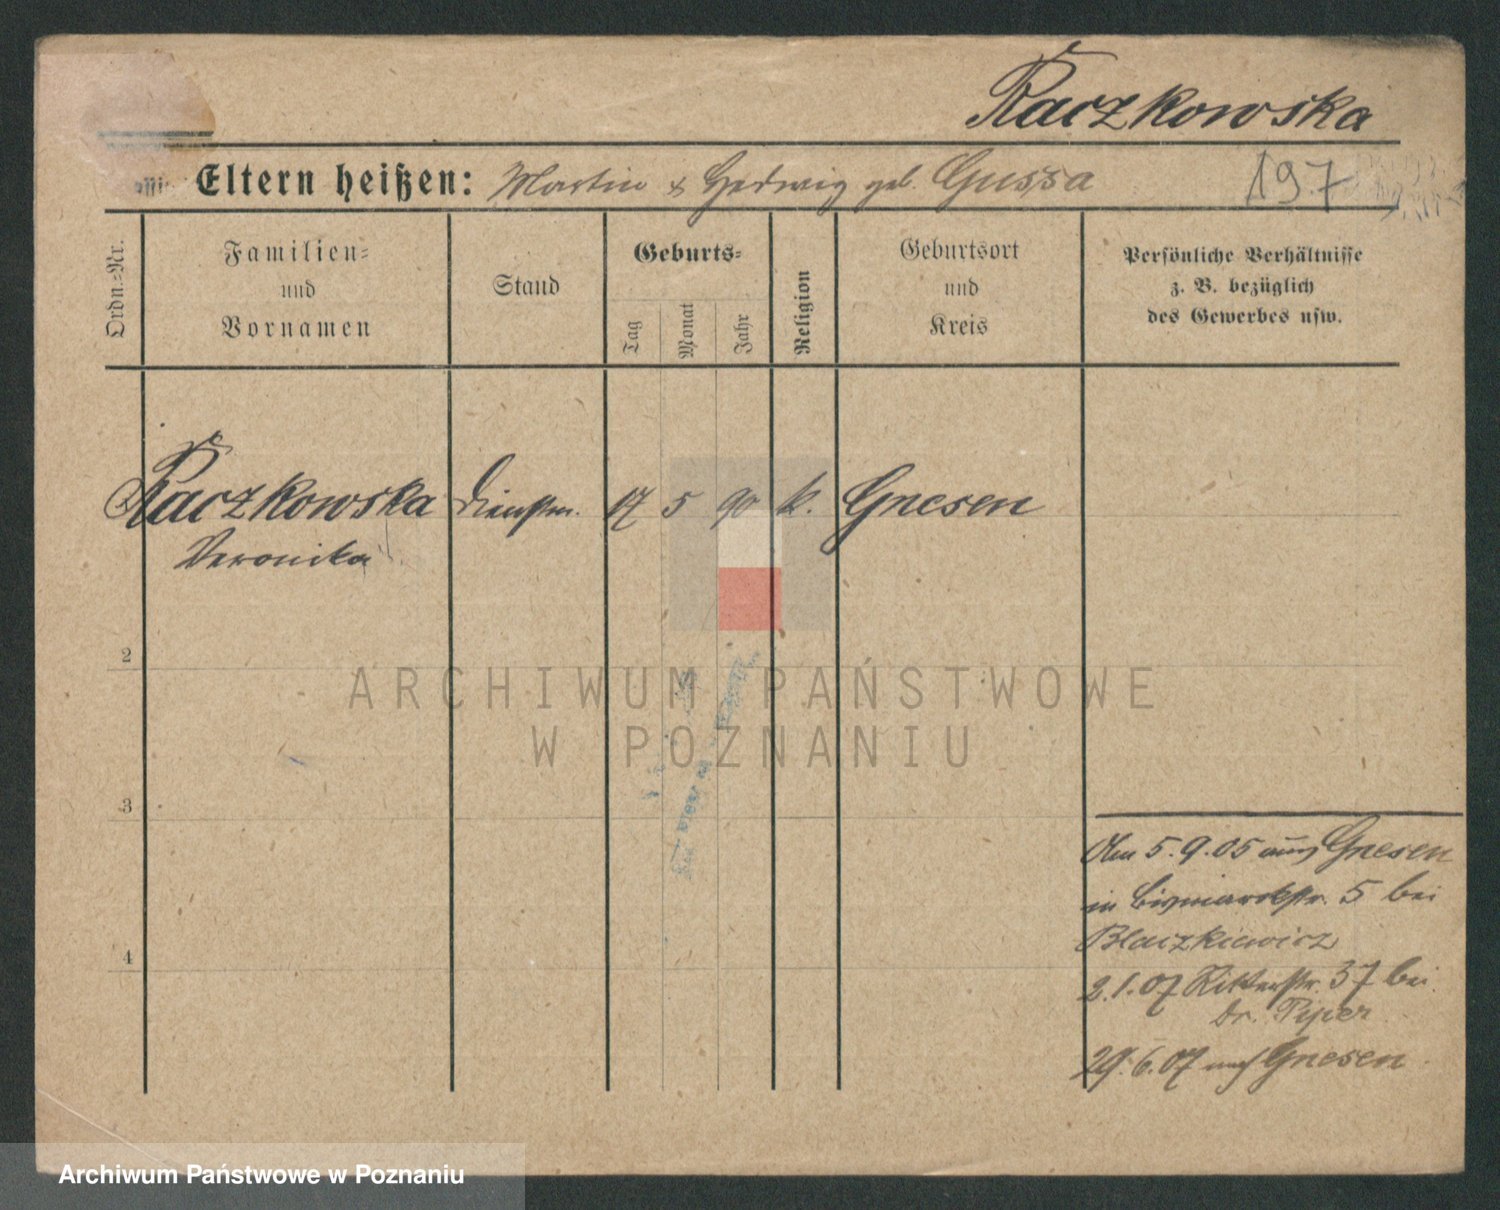 Raczkowska
Eltern heißen: Martin & Hedwig geb. Gussa
197
Ordn.-Nr.
Familien-
und
Vornamen
Stand
Geburts-
Tag
Monat
Jahr
Religion
Geburtsort
und
Kreis
Persönliche Verhältnisse
z. B. bezüglich
des Gewerbes usw.
Raczkowska Dienstm. 17 5 90 k. Gnesen
Veronika
2
3
4
Am 5.9.05 aus Gnesen
in Bismarckstr. 5 bei
Blaczkiewicz
2.1.07 Ritterstr. 37 bei
Dr. Piper
29.6.07 nach Gnesen
ARCHIWUM PAŃSTWOWE
W POZNANIU
Archiwum Państwowe w Poznaniu